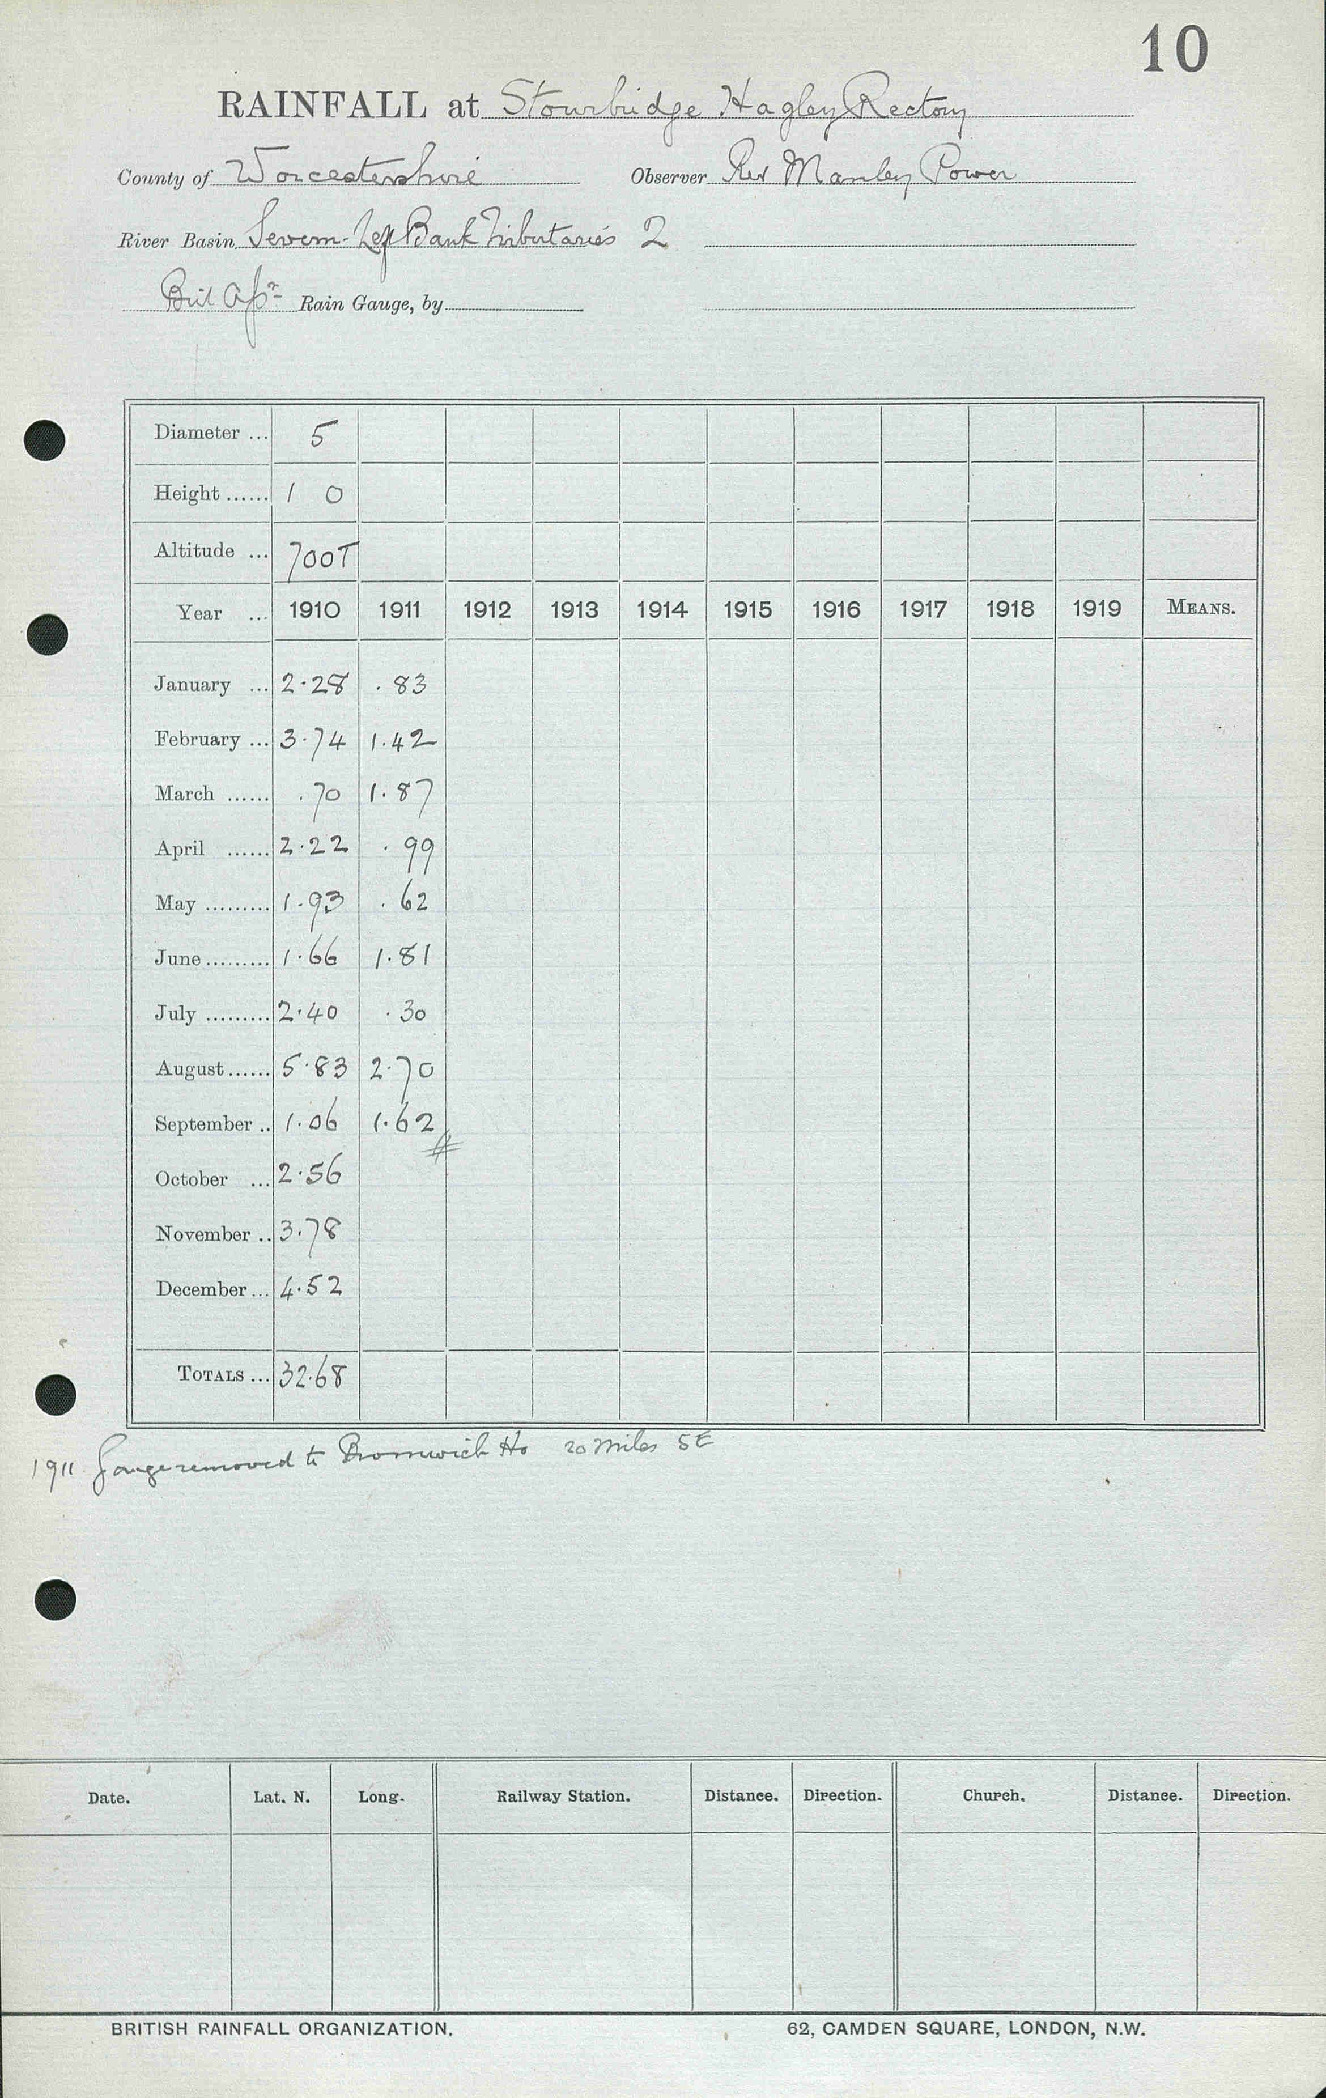 10
RAINFALL at Stourbridge Hagley Rectory
County of Worcestershire Observer Rev Manley Power
River Basin Severn-Left Bank Tributaries 2
Brit Assn Rain Gauge, by
Diameter ... 5
Height ...... 1 0
Altitude ... 700T
Year ... 1910 1911 1912 1913 1914 1915 1916 1917 1918 1919 MEANS.
January ... 2.28 .83
February ... 3.74 1.42
March ...... .70 1.87
April ...... 2.22 .99
May ......... 1.93 .62
June ......... 1.66 1.81
July ......... 2.40 .30
August ...... 5.83 2.70
September .. 1.06 1.62
October ... 2.56
November .. 3.78
December ... 4.52
TOTALS ... 32.68
1911 Gauge removed to Bromwich Ho 20 miles SE
Date. Lat. N. Long. Railway Station. Distance. Direction. Church. Distance. Direction.
BRITISH RAINFALL ORGANIZATION. 62, CAMDEN SQUARE, LONDON, N.W.